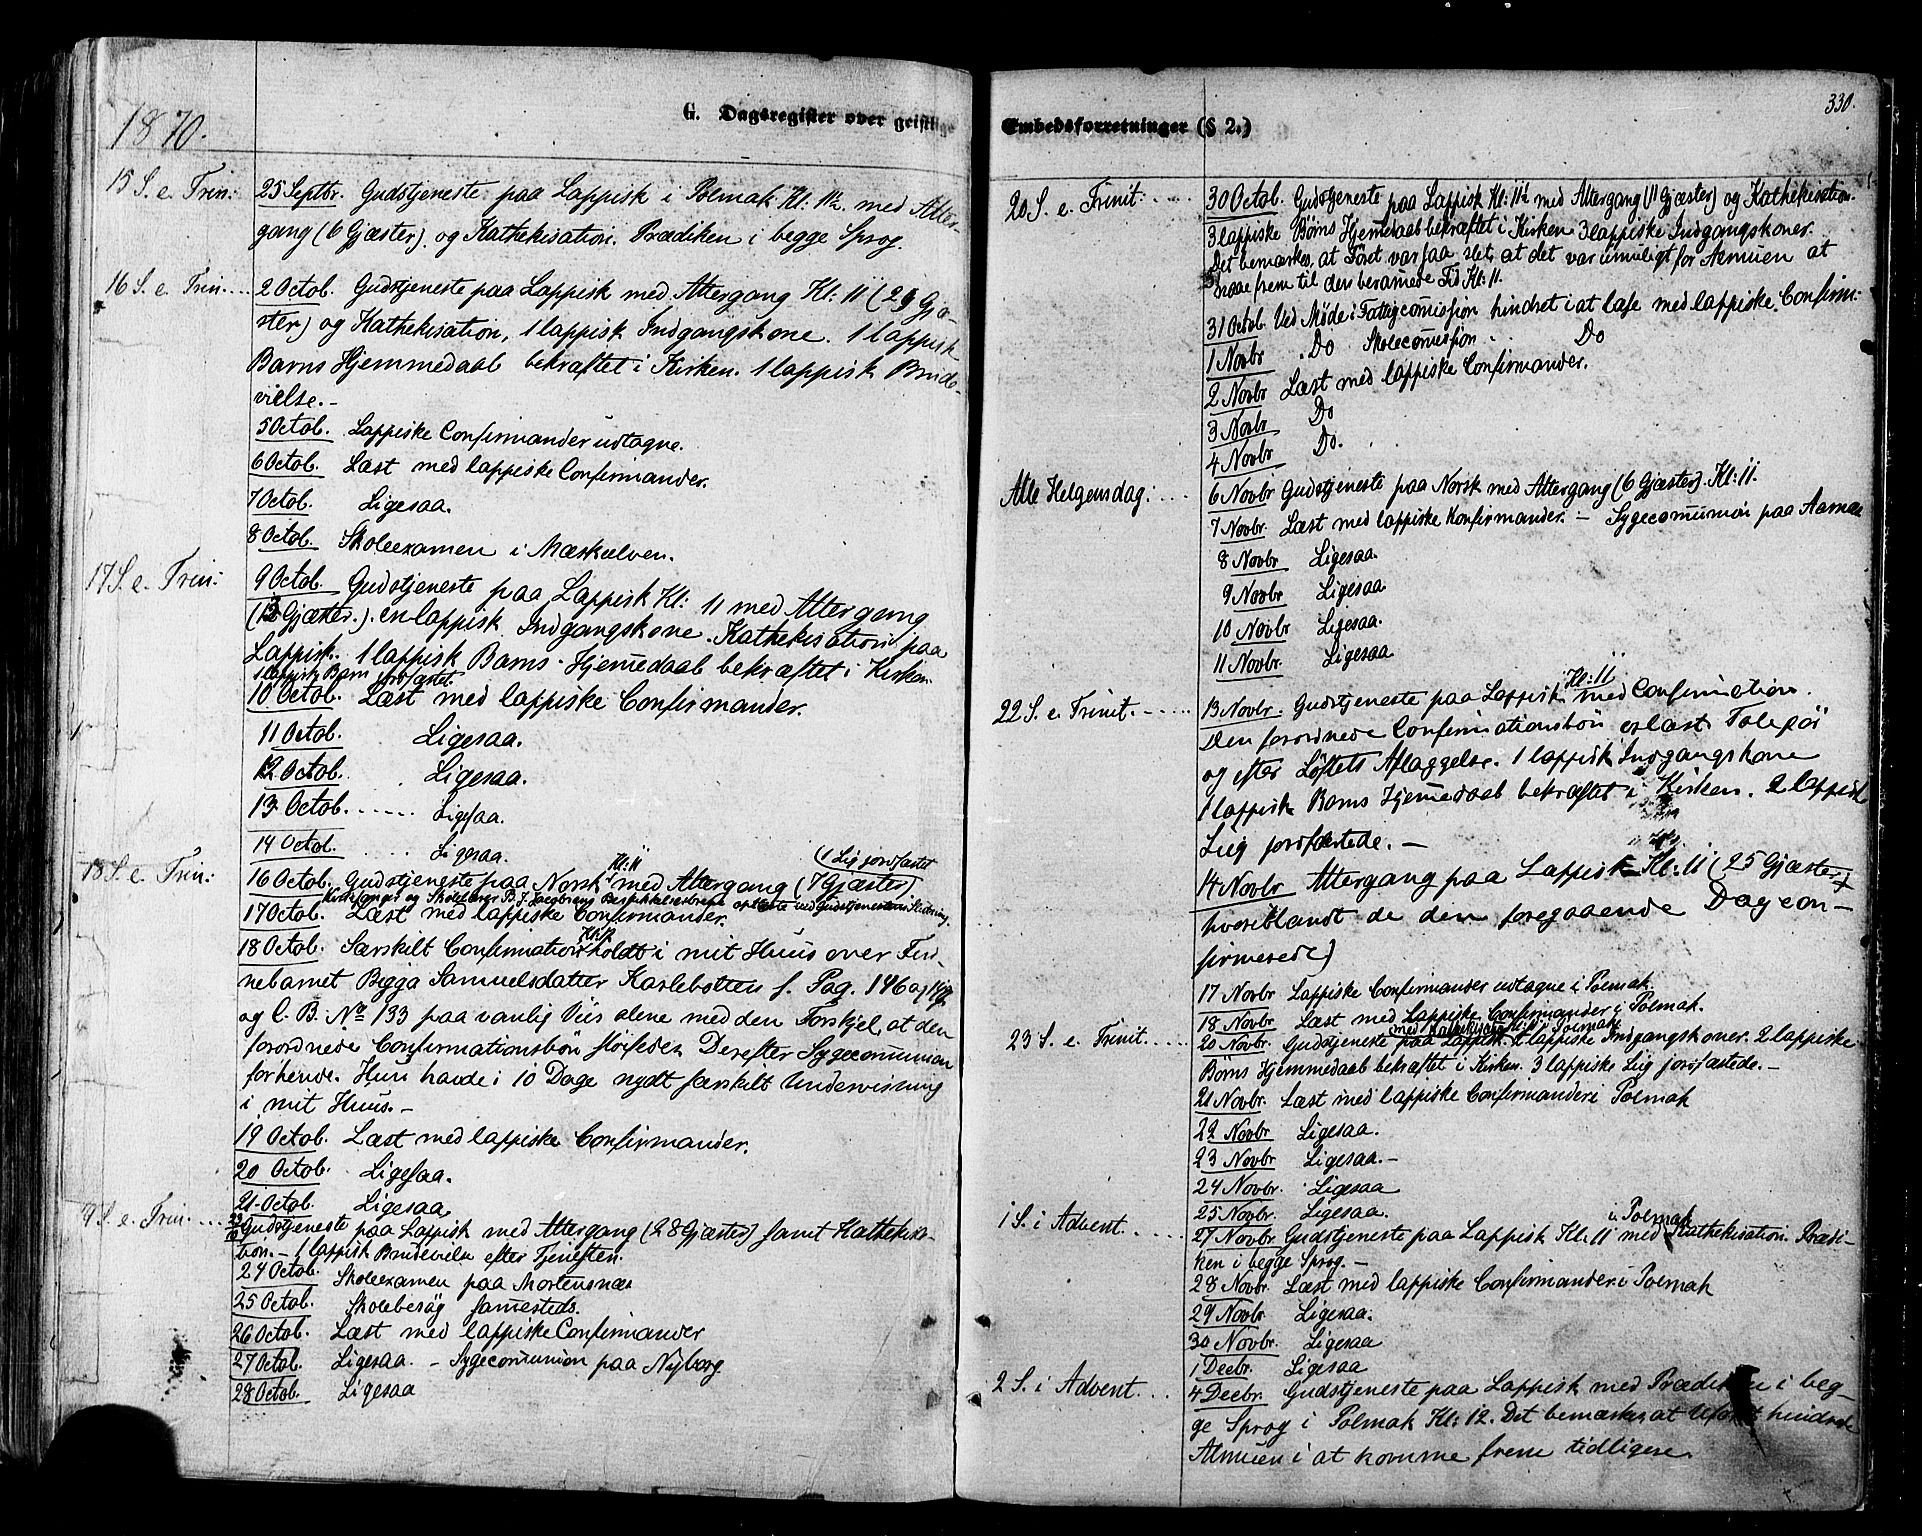 330.
G. Dagsregister over geistlige
Embedsforretninger (§ 2.)
1870.
15 S. e. Trin: 25 Septbr. Gudstjeneste paa Lappisk i Polmak Kl: 11½ med Alter-
gang (6 Gjæster) og Kathekisation. Prædiken i begge Sprog.
16 S. e. Trin.... 2 Octob. Gudstjeneste paa Lappisk med Altergang Kl: 11 (25 Gjæ-
ster) og Kathekisation, 1 lappisk Indgangskone. 1 lappisk
Barns Hjemmedaab bekræftet i Kirken. 1 lappisk Brude-
vielse.-
5 Octob. Lappiske Confirmander udtagne.
6 Octob. Læst med lappiske Confirmander.
7 Octob. Ligesaa.
8 Octob. Skoleexamen i Mæskelven.
17 S. e. Trin: 9 Octob. Gudstjeneste paa Lappisk Kl: 11 med Altergang
(13 Gjæster.) en lappisk Indgangskone. Kathekisation paa
Lappisk. 1 lappisk Barns Hjemedaab bekræftet i Kirken.
1 lappisk Barn jordfæstet.
10 Octob. Læst med lappiske Confirmander.
11 Octob. Ligesaa.
12 Octob. Ligesaa.
13 Octob. ..... Ligesaa.
14 Octob. Ligesaa.
18 S. e. Trin: 16 Octob. Gudstjeneste paa Norsk Kl: 11 med Altergang (7 Gjæster) (1 Lig jordfæstet
Kirkesanger og Skolelærer B. J. Jacobsens Beskikkelsesbrev oplæste ved Gudstjenestens Slutning.
17 Octob. Læst med lappiske Confirmander.
18 Octob. Særskilt Confirmation holdt i mit Huus over Fin-
nebarnet Bigga Samuelsdatter Karlebotten f. Pag. 146 og
og C. B. No 133 paa vanlig Viis alene med den Forskjel, at den
forordnede Confirmationsbön slöifedes. Derefter Sygecommunion
for hende. Hun havde i 10 Dage nydt særskilt Underviisning
i mit Huus.-
19 Octob. Læst med lappiske Confirmander.
20 Octob. Ligesaa.
21 Octob. Ligesaa
9 S. e. Trin.... Gudstjeneste paa Lappisk med Altergang (28 Gjæster) samt Kathekisa-
tion.- 1 lappisk Brudevielse efter Tjenesten.
24 Octob. Skoleexamen paa Mortensnæs
25 Octob. Skolebesög sammesteds.
26 Octob. Læst med lappiske Confirmander
27 Octob. Ligesaa. - Sygecommunion paa Nyborg.
28 Octob. Ligesaa
20 S. e. Trinit..... 30 Octob. Gudstjeneste paa Lappisk Kl: 11½ med Altergang (11 Gjæster) og Kathekisation.
3 lappiske Börns Hjemedaab bekræftet i Kirken 3 lappiske Indgangskoner.
Det bemærkes, at Föret var saa slet, at det var umuligt for Almuen at
naae frem til den beramede Tid Kl: 11.
31 Octob. Ved Möde i Fattigcomission hindret i at læse med lappiske Confirm:
1 Novbr Do Skolecomission Do
2 Novbr Læst med lappiske Confirmander.
3 Novbr Do
4 Novbr Do.
Alle Helgensdag..... 6 Novbr Gudstjeneste paa Norsk med Altergang (6 Gjæster). Kl: 11.
7 Novbr. Læst med lappiske Konfirmander. - Sygecomunion paa
8 Novbr Ligesaa.
9 Novbr Ligesaa
10 Novbr Ligesaa.
11 Novbr Ligesaa
22 S. e. Trinit..... 13 Novbr. Gudstjeneste paa Lappisk Kl: 11 med Confirmation.
Den forordnede Confirmationsbön oplæst
og efter Löftets Aflæggelse. 1 lappisk Indgangskone
1 lappisk Barns Hjemedaab bekræftet i Kirken. 2 lappisk
Liig jordfæstede.-
14 Novbr Altergang paa Lappisk Kl: 11 (25 Gjæster,
hvoriblandt de den foregaaende Dag con-
firmerede)
17 Novbr Lappiske Confirmander udtagne i Polmak
18 Novbr. Læst med Lappiske Confirmander i Polmak.
med Kathekisation Kl: 11 i Polmak
23 S. e. Trinit..... 20 Novbr. Gudstjeneste paa Lappisk. 2 lappiske Indgangskoner. 2 lappiske
Börns Hjemmedaab bekræftet i Kirken. 3 lappiske Liig jordfæstede.-
21 Novbr. Læst med lappiske Confirmander i Polmak
22 Novbr Ligesaa.
23 Novbr Ligesaa.-
24 Novbr. Ligesaa
25 Novbr. Ligesaa.
1 S. i Advent..... 27 Novbr Gudstjeneste paa Lappisk Kl: 11 i Polmak med Kathekisation. Prædi-
ken i begge Sprog.-
28 Novbr. Læst med lappiske Confirmander i Polmak
29 Novbr Ligesaa.
30 Novbr. Ligesaa
1 Decbr. Ligesaa
2 S. i Advent.... 4 Decbr. Gudstjeneste paa Lappisk med Prædiken i beg-
ge Sprog i Polmak Kl: 12. Det bemærkes, at Uföret hindrede
Almuen i at komme frem tidligere.